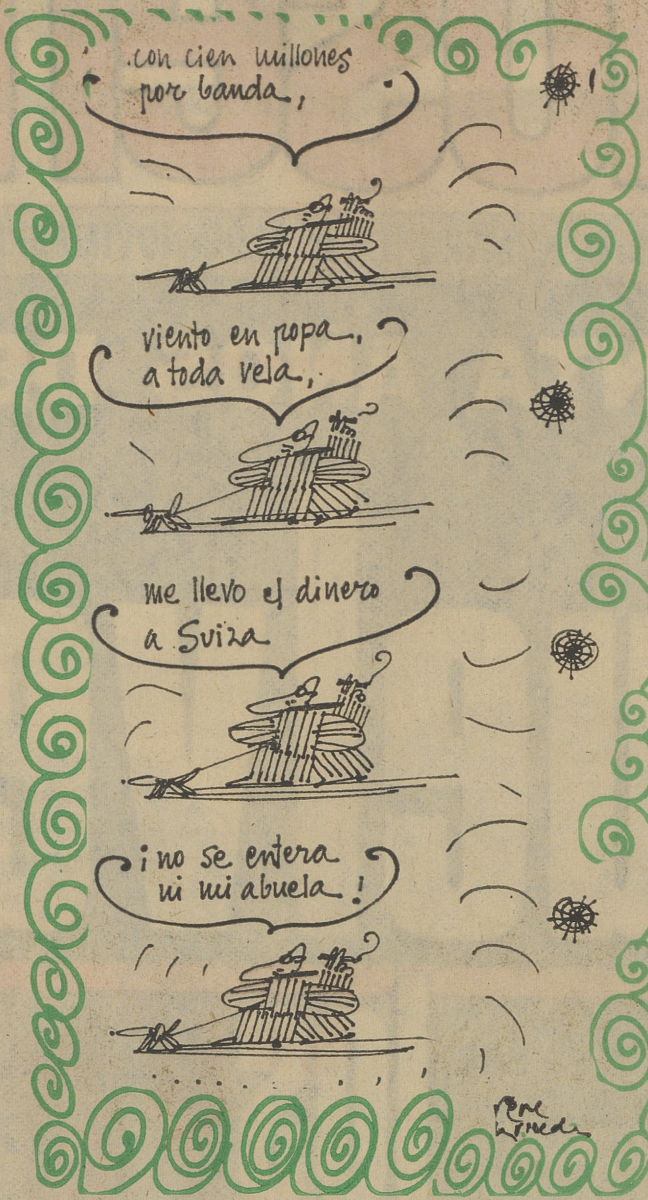 con cien millones
por banda,
viento en popa,
a toda vela,
me llevo el dinero
a Suiza
¡no se entera
ni mi abuela!